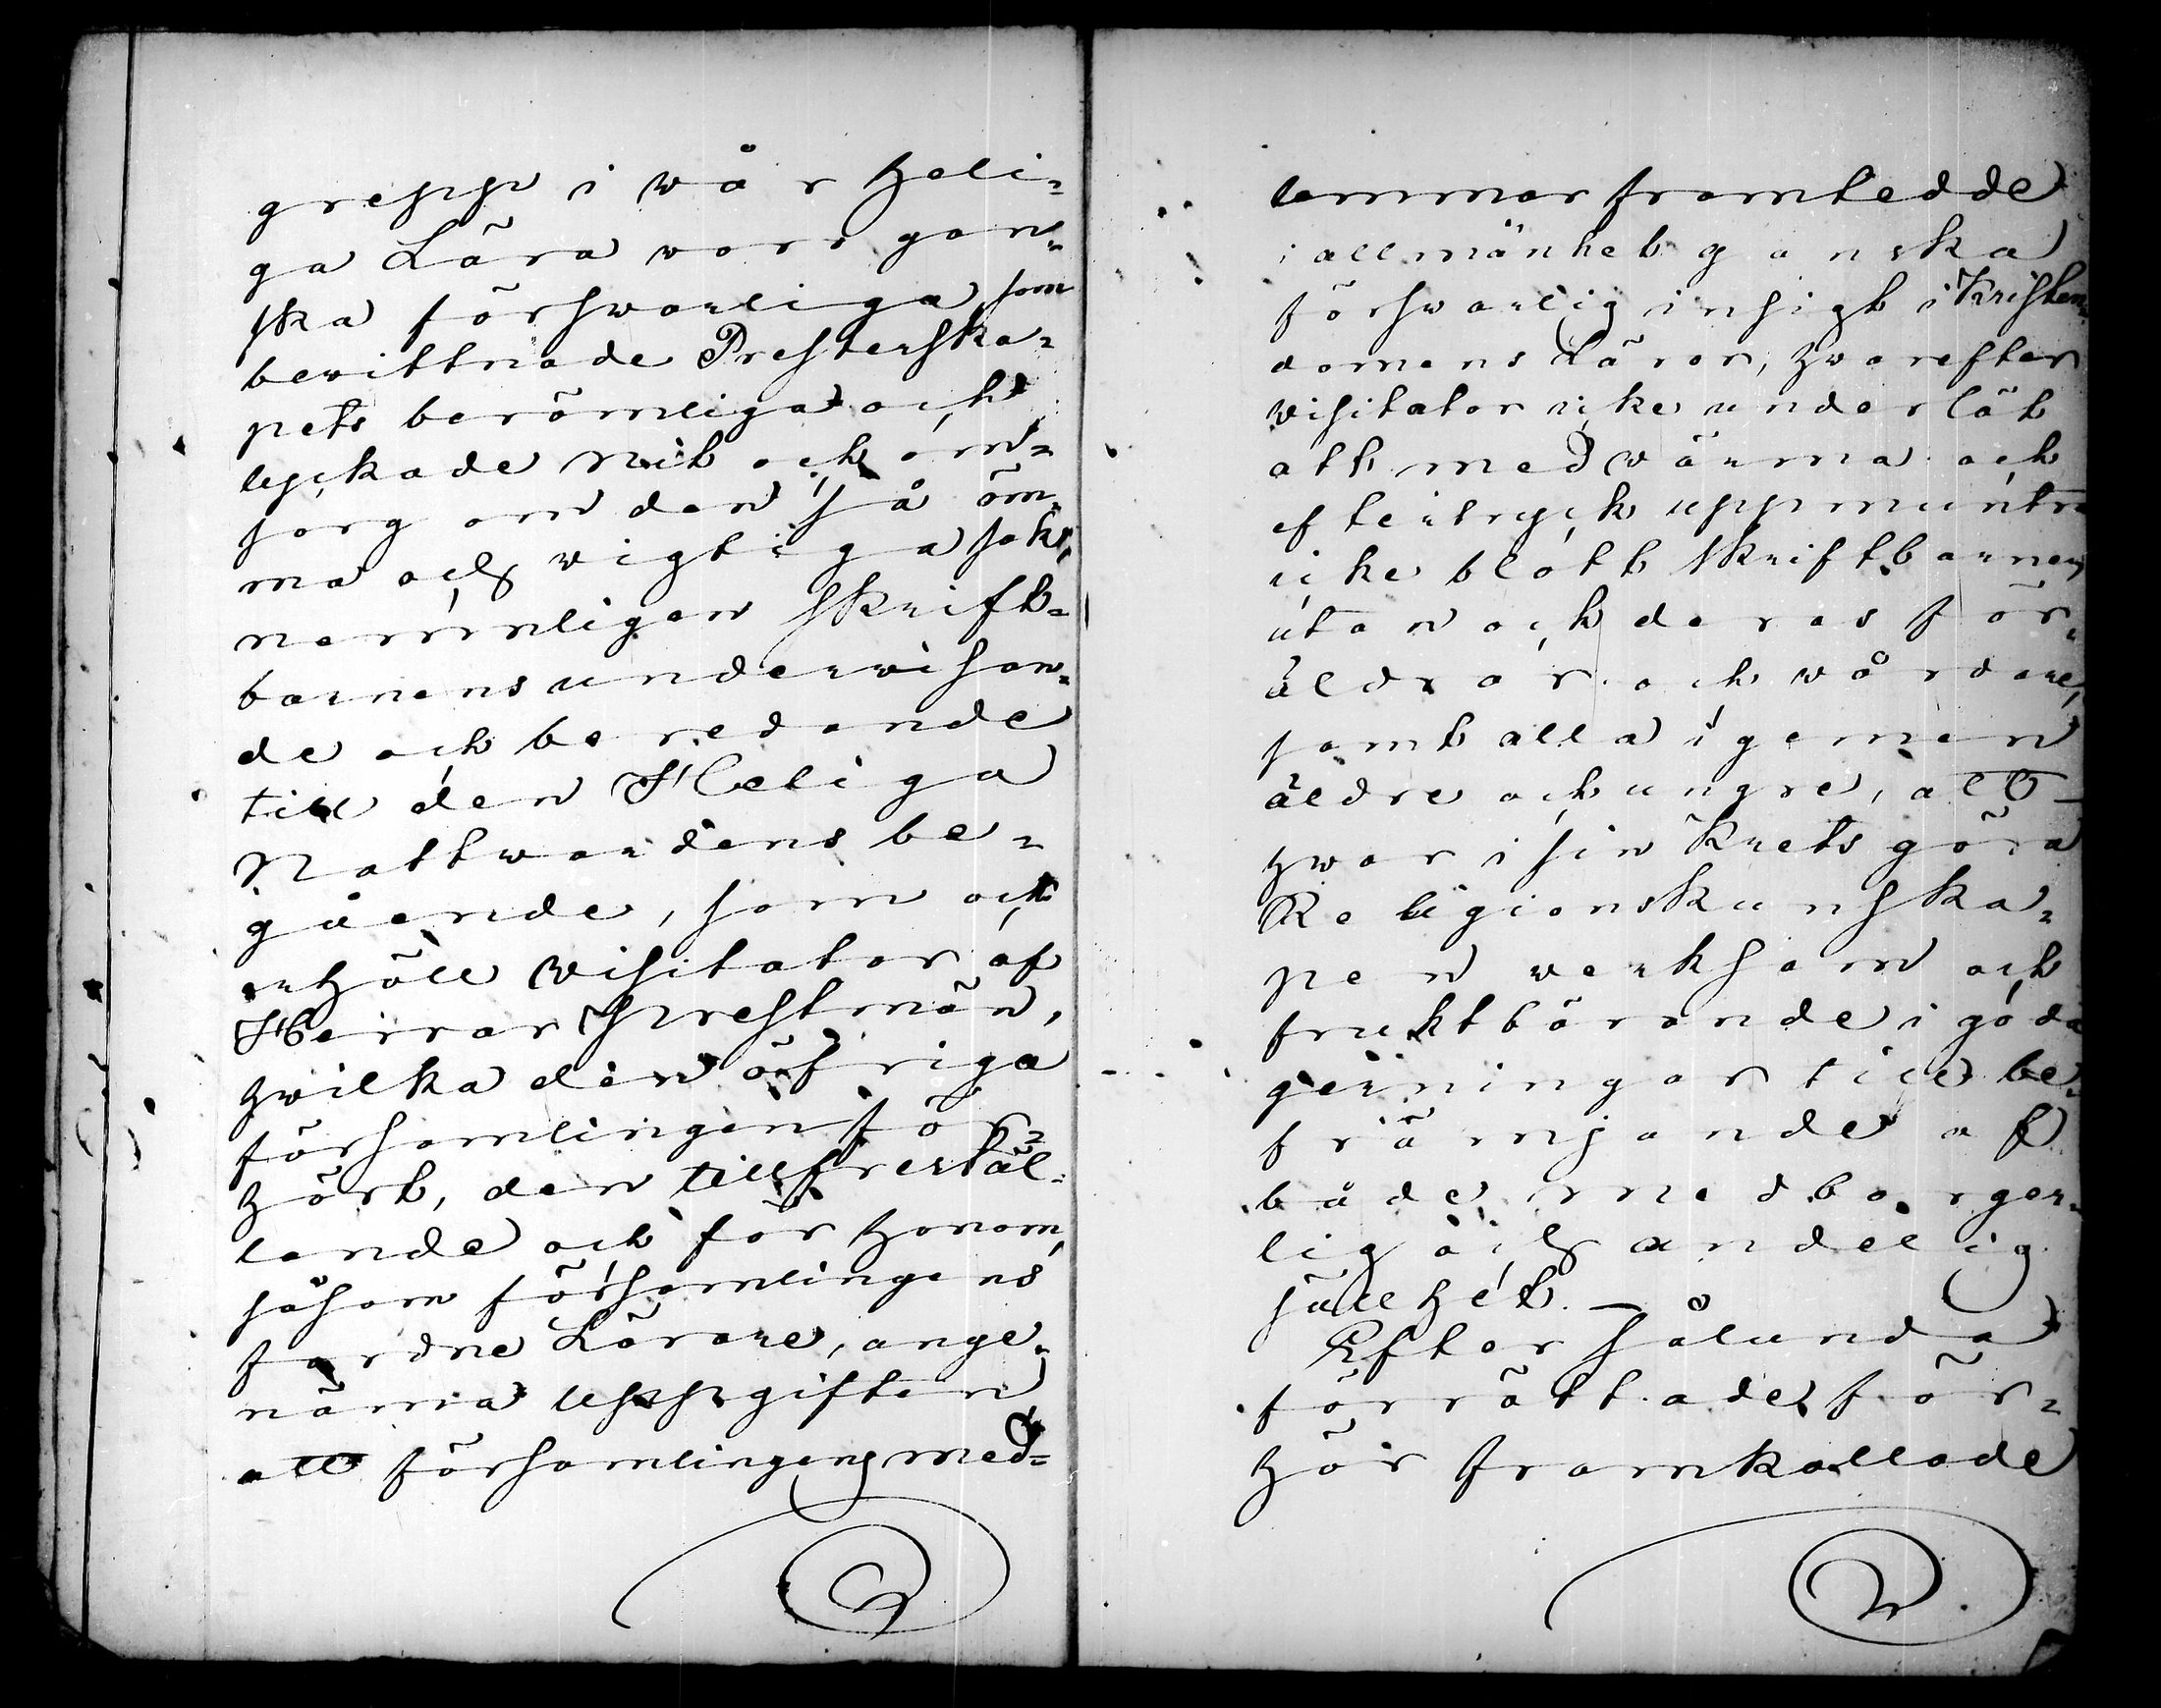 grepp i wår heli-
ga Lära voro gan-
ska förswarliga som
bewittnade Presterska-
pets berömliga och
lyckade nit och om-
sorg om den så öm-
ma och wigtiga sak,
nemnligen Skrift-
barnens underwisan-
de och beredande
till den Heliga
Nattwardens be-
gående, som ock
erhöll Visitator af
Herrar Prestmän,
hwilka den öfriga
församlingen för-
hört, den tillfredstäl-
lande och för honom,
såsom församlingens
fordne Lärare, ange-
näma uppgiften
att församlingens med-
lemmar framtedde
i allmänhet ganska
förswarlig insigt i Kristen-
domens Läror, hwarefter
visitator icke underlät
att med wärma och
eftertryck uppmuntra
icke blott Skriftbarnen
utan ock deras för-
äldrar och wårdare,
samt alla i gemen
äldre och yngre, att
hwar i sin krets göra
Religionskunska-
pen werksam och
fruktbärande i goda
gerningar till be-
främjande af
både medborger-
lig och andelig
sällhet. —
Efter sålunda
förrättade för-
hör framkallade